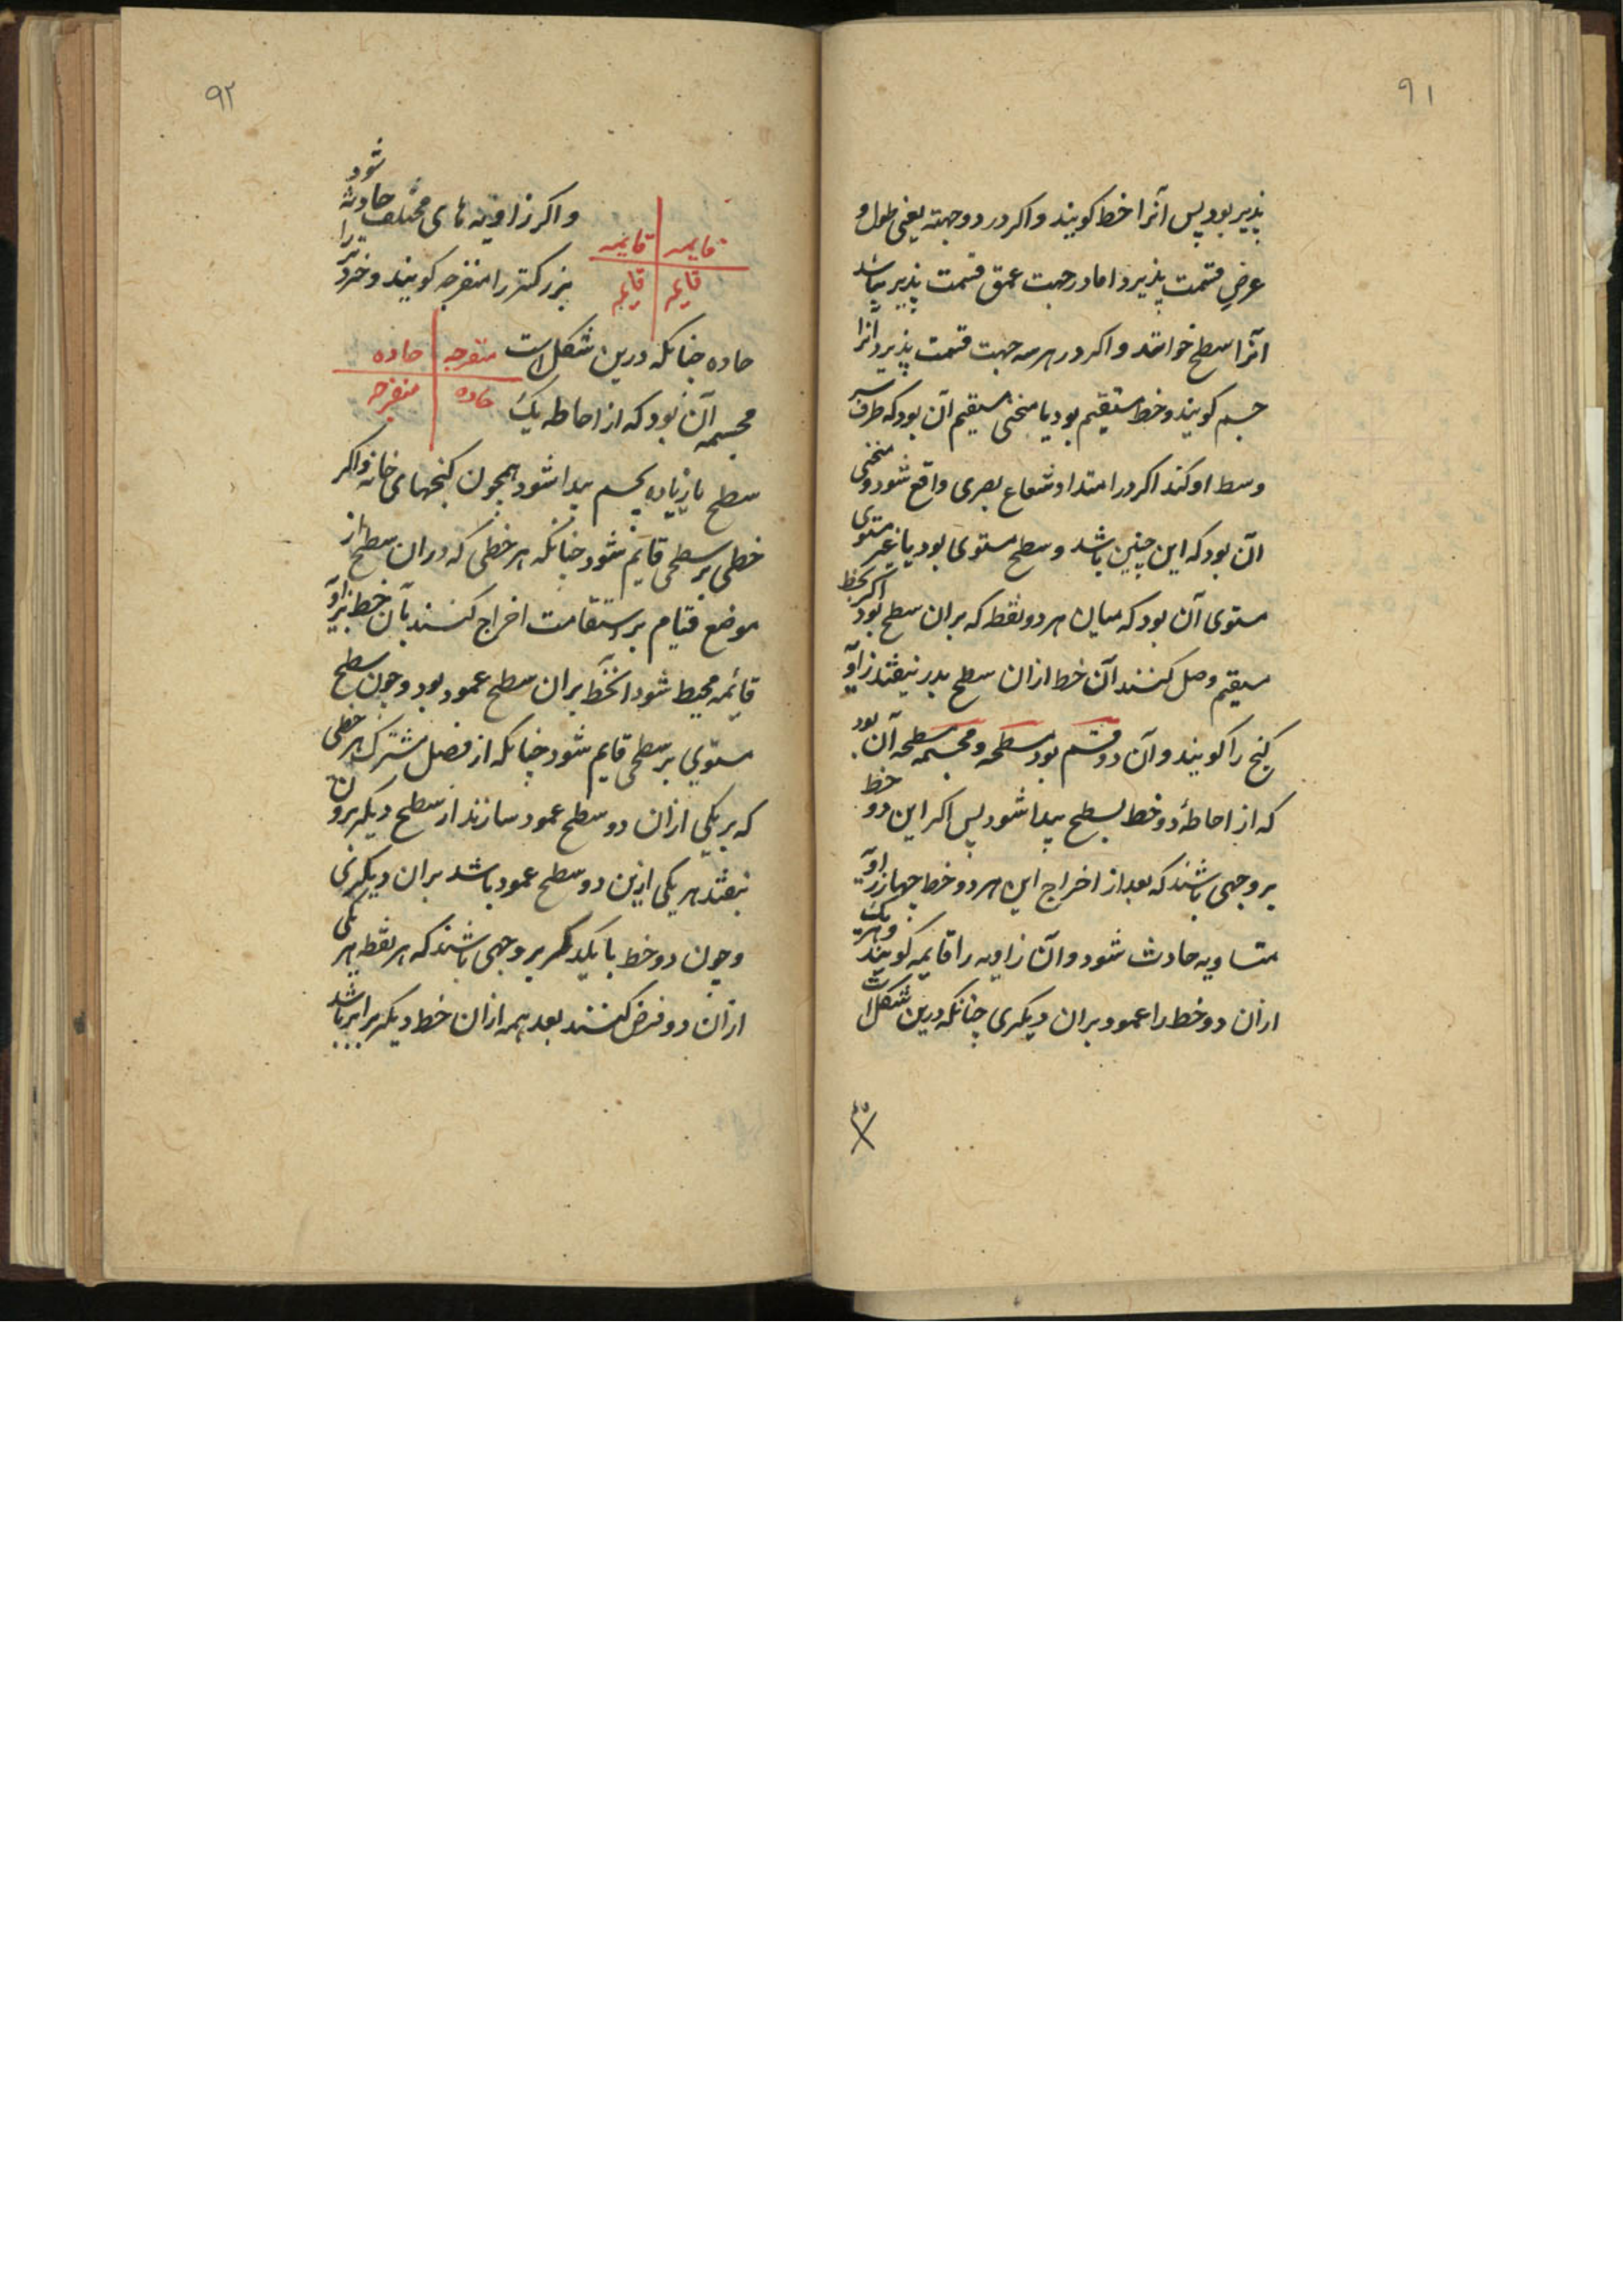 ۹۱
پذیر بود پس آنرا خط کویند و اکر در دو جهته یعنی طول و
عرض قسمت پذیرد اما در جهت عمق قسمت پذیر نباشد
انرا سطح خوانند و اکر در هر سه جهت قسمت پذیرد انرا
جسم کویند و خط مستقیم بود یا منحنی مستقیم آن بود که طرف ستر
وسط او کند اکر در امتداد شعاع بصری واقع شود و منحنی
آن بود که این چنین باشد و سطح مستوی بود یا غیر مستوی
مستوی آن بود که میان هر دو نقطه که بران سطح بود اکر بخط
مستقیم وصل کنند آن خط ازان سطح بدر نیفتد زاویه
کنج را کویند و آن دو قسم بود مسطحه و مجسمه مسطحه آن بود
که از احاطهٔ دو خط بسطح پیدا شود پس اکر این دو خط
بر وجهی باشند که بعد از اخراج این هر دو خط چهار زاویه
متساویه حادث شود و آن زاویه را قایمه کویند و هر یک
ازان دو خط را عمود بران دیکری چنانکه درین شکل است
۹۲
و اکر زاویه های مختلف حادث شود
قایمه قایمه
بزرکتر را منفرجه کویند و خردتر را
قایمه قایمه
حاده چنانکه درین شکل است
منفرجه حاده
مجسمه آن بود که از احاطه یک
حاده منفرجه
سطح یا زیاده بجسم پیدا شود همچون کنجهای خانه و اکر
خطی بر سطحی قایم شود چنانکه هر خطی که دران سطح از
موضع قیام بر استقامت اخراج کنند بآن خط بزاویه
قائمه محیط شود انخط بران سطح عمود بود و چون سطح
مستوی بر سطحی قایم شود چنانکه از فصل مشترک هر خطی
که بر یکی ازان دو سطح عمود سازند از سطح دیکر بیرون
نیفتد هر یکی ازین دو سطح عمود باشد بران دیکری
و چون دو خط با یکدیکر بر وجهی باشند که هر نقطه بر یکی
ازان دو فرض کنند بعد همه ازان خط دیکر برابر باشد